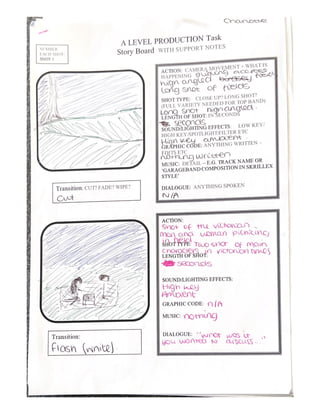 Charlotte
A LEVEL PRODUCTION Task
Story Board WITH SUPPORT NOTES
NUMBER
EACH SHOT:
SHEET 1
ACTION: CAMERA MOVEMENT + WHAT IS
HAPPENING
high angled
long shot of fields
SHOT TYPE: CLOSE UP? LONG SHOT?
(FULL VARIETY NEEDED FOR TOP BAND)
Long shot high angled.
LENGTH OF SHOT: IN SECONDS
seconds
SOUND/LIGHTING EFFECTS: LOW KEY/
HIGH KEY/SPOTLIGHT/FILTER ETC
High key ambient
GRAPHIC CODE: ANYTHING WRITTEN -
TITLES ETC
nothing written
MUSIC: DETAIL – E.G. TRACK NAME OR
'GARAGEBAND COMPOSITION IN SKRILLEX
STYLE'
DIALOGUE: ANYTHING SPOKEN
N/A
Transition: CUT? FADE? WIPE?
Cut
ACTION:
Shot of the victorian
man and woman picnicing
in field
SHOT TYPE: Two shot of main
characters in victorian times
LENGTH OF SHOT:
seconds
SOUND/LIGHTING EFFECTS:
High key
Ambient
GRAPHIC CODE: n/A
MUSIC: nothing
DIALOGUE: "what was it
you wanted to discuss..."
Transition:
Flash (white)